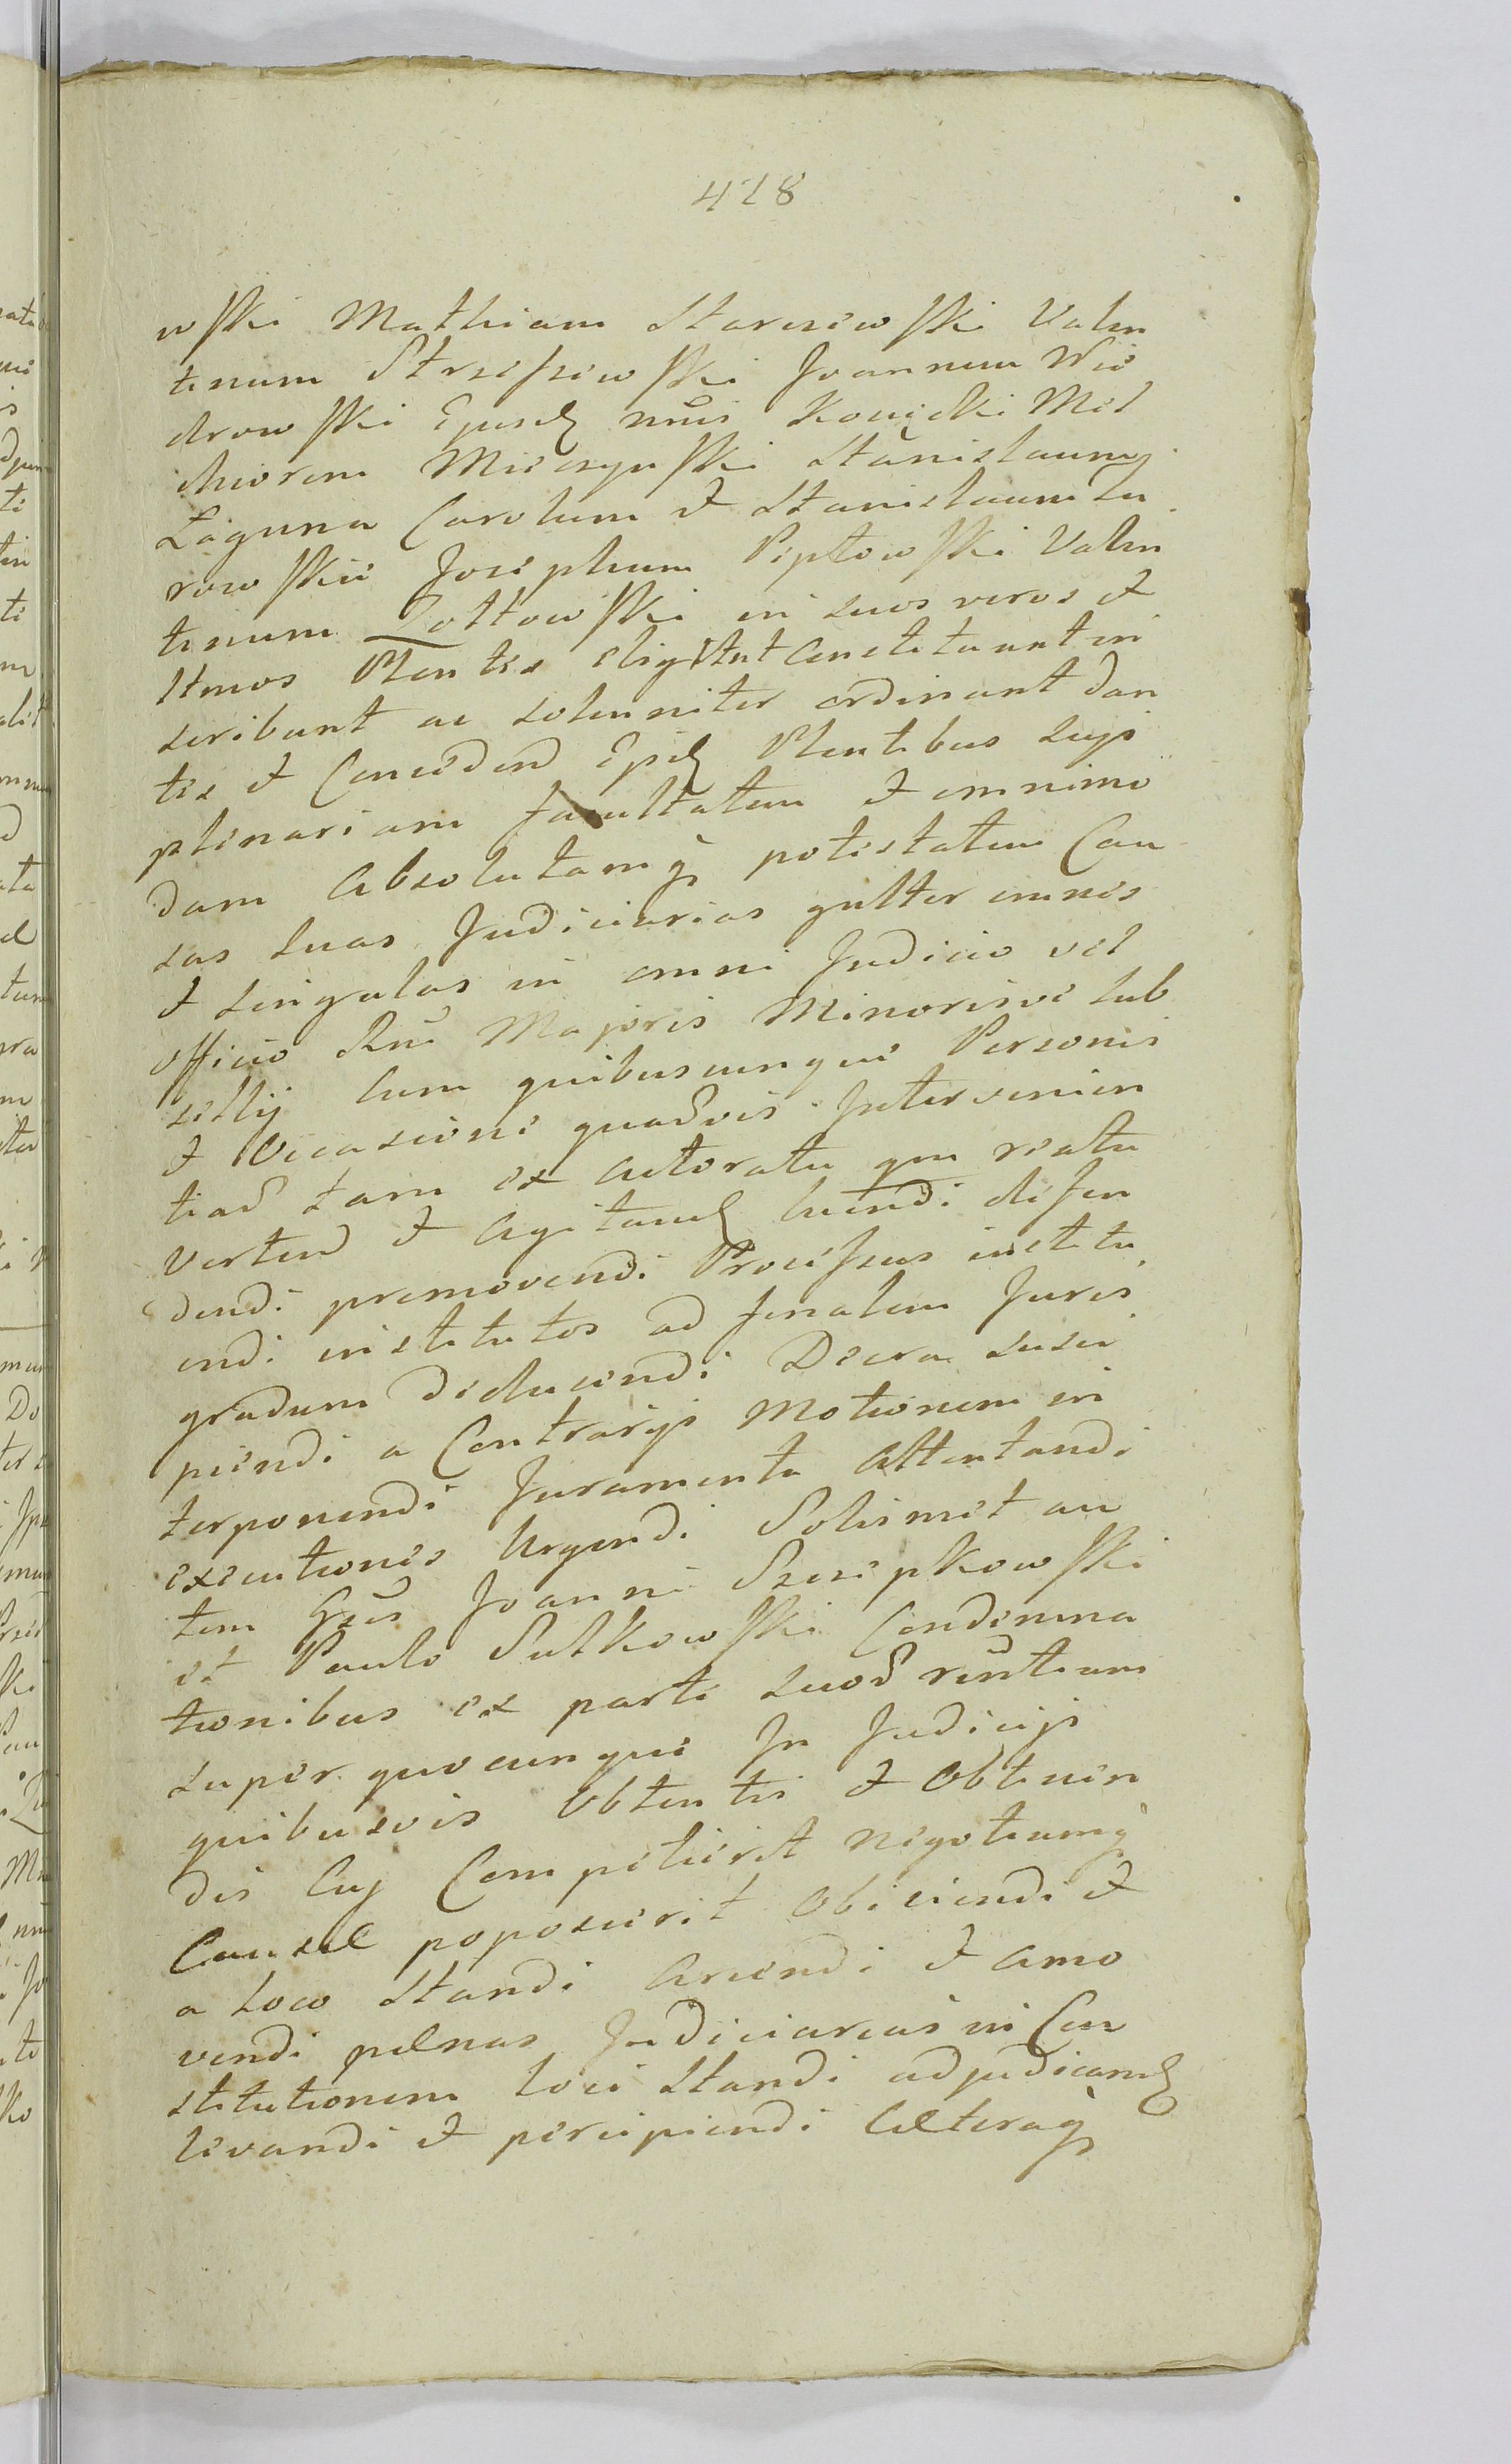 428
wski Mathiam Starczewski Valen
tinum Strzeszewski Joannem Wio
drowski Ejusd nūis Kowidki Mel
chiorem Mieczynski Stanislaum
Laguna Carolum et Stanislaum Zu
rowskie Josephum Piptowski Valen
tinum Zołtowski in suos veros et
ltmos Plentes eligunt Constituunt in
scribunt ac solenniter ordinant Dan
tes et Conceden Epsd Plentibus suis
plenariam facultatem et omnimo
dam Absolutamq potestatem Cau
sas suas Judiciarias gnltter omnes
et singulas in omni Judicio vel
officio Rni Majoris Minorisve Sub
sellij Cum quibuscunque Personis
et Occasione quavis Intervenien
tiad tam ex actoratu qm reatu
Verten et Agitand Acendi defen
dendi promovendi Processus institu
endi institutos ad finalem Juris
gradum deducendi Decra susci
piendi a Contrarijs Motionem in
terponendi Juramenta Attentandi
executiones Urgendi Solismet au
tem Gsis Joanni Szczepkowski
et Paulo Sutkowski Condemna
tionibus ex parte suod renitium
super quocunque In Judicijs
quibusvis Obtentis et Obtinen
dis Cuj Competierit negotiumq
Causae poposcerit Obiiciendi et
a loco Standi Arcendi et Amo
vendi paenas Judiciarias in Con
stitutionem loci Standi adjudicand
levandi et percipiendi Caeteraq